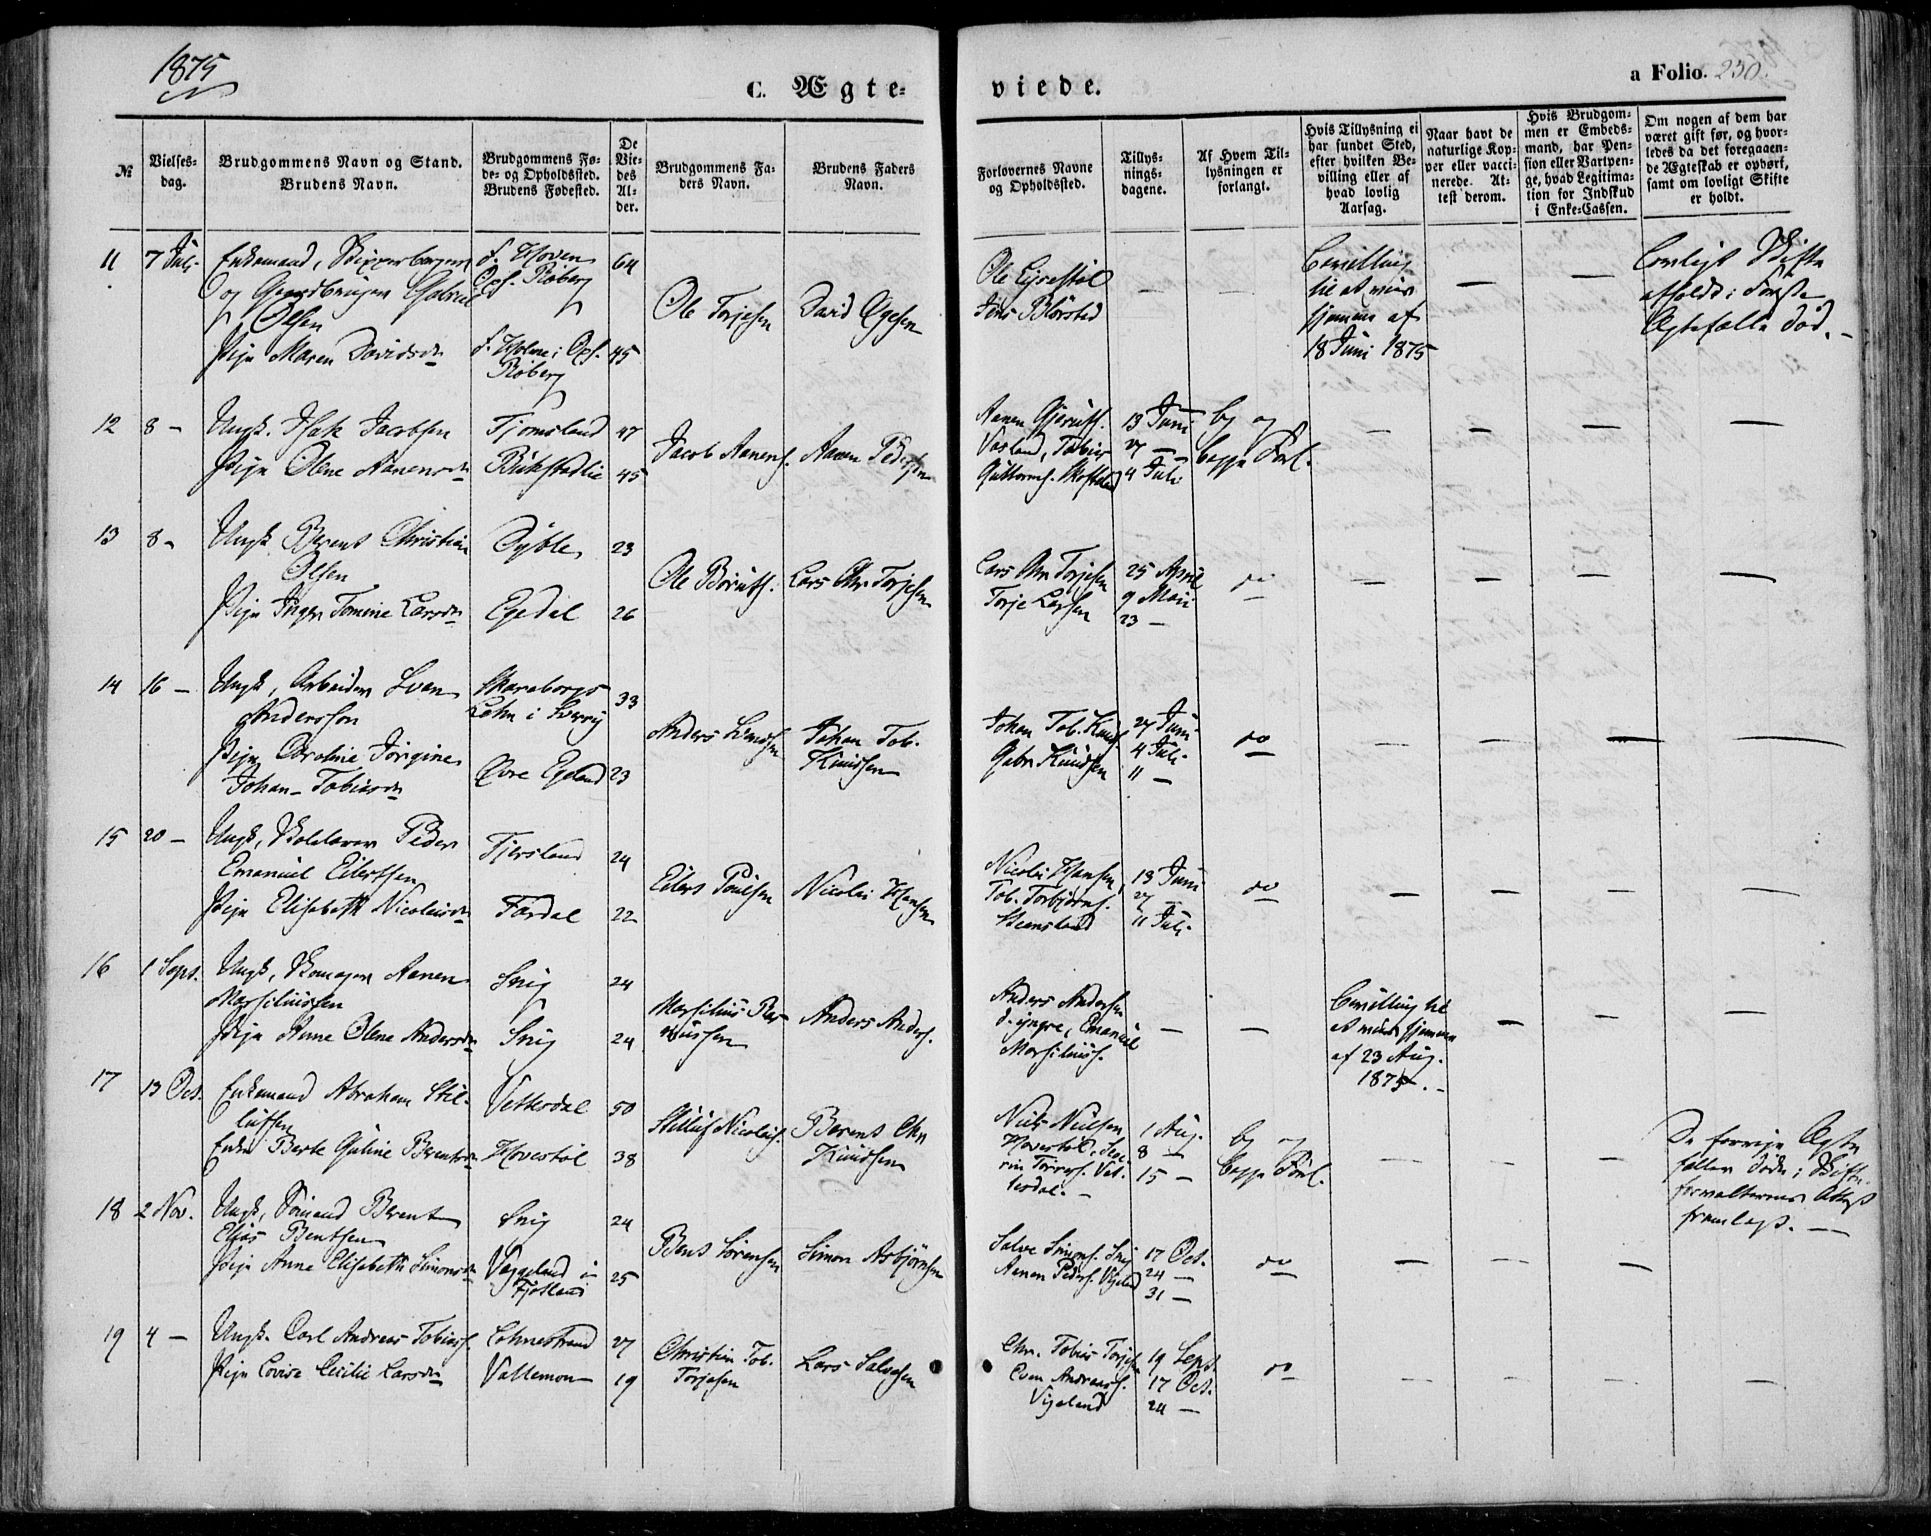 1875
C. Ægte-
viede.
a Folio. 250.
№
Vielses-
dag.
Brudgommens Navn og Stand.
Brudens Navn.
Brudgommens Fø-
de- og Opholdssted.
Brudens Fødested.
De
Vie-
des
Al-
der.
Brudgommens Fa-
ders Navn.
Brudens Faders
Navn.
Forlovernes Navne
og Opholdssted.
Tillys-
nings-
dagene.
Af Hvem Til-
lysningen er
forlangt.
Hvis Tillysning ei
har fundet Sted,
efter hvilken Be-
villing eller af
hvad lovlig
Aarsag.
Naar havt de
naturlige Kop-
per eller vacci-
nerede. At-
test derom.
Hvis Brudgom-
men er Embeds-
mand, har Pen-
sion eller Vartpen-
ge, hvad Legitima-
tion for Indskud
i Enke-Cassen.
Om nogen af dem har
været gift før, og hvor-
ledes da det foregaaen-
de Ægteskab er ophørt,
samt om lovligt Skifte
er holdt.
11 7 Juli
Enkemand,
og Gaardbruger Gabriel
Olsen
Pige Maren Davidsdr
64
45
Ole Torjesen
David Ogesen
Ole
Jens
Bevilling
til at vies
hjemme af
18 Juni 1875
Lovligt Skifte
afholdt; første
Ægtefælle død. —
12 8 —
Ungk. Isak Jacobsen
Tjomsland 47
Pige Olene Aanensdr
45
Jacob Aanens.
Aanen Pedersen
13 Juni
27 —
4 Juli
begge Forl.
13 8 —
Ungk Berent Christian
Olsen
Øyble 23
Pige Inger Tomine Larsdr
Egedal 26
Lars Chr. Torjesen
Lars Chr Torjesen
Torje Larsen
25 April
9 Mai
23 —
do
14 16 —
Ungk, Arbeider Sven
Andersson
Skaraborgs
Lehn i Sverig
33
Pige Caroline Jørgine
Johan-Tobiasdr
Øvre Egeland 23
Johan Tob.
Knudsen
Johan Tob. Knuds
Gabr Knudsen
27 Juni
4 Juli
11 —
do
15 20 —
Ungk, Skolelærer Peder
Emanuel Eilertsen
Fjersland 24
Pige Elisabeth Nicolaisdr
Førdal 22
Eilert Poulsen
Nicolai Hansen
Nicolai Hansen,
Tob. Torbjørns.
Steensland
13 Juni
27 —
11 Juli
do
16 1 Sept.
Ungk, Skomager Aanen
Marsiliussen
Snig 24
Pige Anne Olene Andersdr
Snig 24
Anders Anders.
Anders Andersen
d. yngre, Emanuel
Marsilius.
Bevilling til
at vies hjemme
af 23 Aug.
1875. —
17 13 Oct.
Enkemand Abraham Stil-
lufsen
Vetterdal 50
Enke Berte Guline Berntsdr
Hovestøl 38
Stilluf Nicolais.
Berent Chr
Knudsen
Niels Nielsen
Hovestøl,
1 Aug.
8 —
15 —
begge Forl.
De forrige Ægte-
fæller døde; Skifte-
forvalterens Attest
fremlagt. —
18 2 Nov.
Ungk, Sømand Berent
Elias Bentsen
Snig 24
Pige Anne Elisabeth Simonsdr
i
Fjotland
25
Bent Sørensen
Simon Asbjørnsen
Salve Simons. Snig
Aanen Peders. Vigeland
17 Oct.
24 —
31 —
do
19 4 —
Ungk. Carl Andreas Tobias.
Lohnestrand 27
Pige Lovise Cecilie Larsdr
Vattemon 19
Christian Tob.
Torjesen
Lars Salvesen
Chr. Tobias Torjesen
Even Andreas.
Vigeland
19 Sept.
17 Oct.
24 —
do